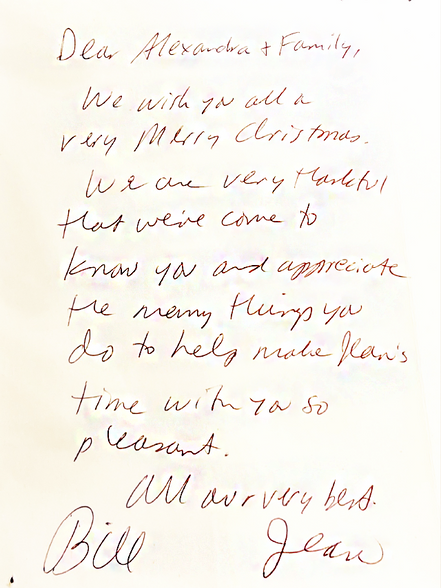 Dear Alexandra + Family,
We wish you all a
very Merry Christmas.
We are very thankful
that we've come to
know you and appreciate
the many things you
do to help make Jean's
time with you so
pleasant.
All our very best.
Bill Jean